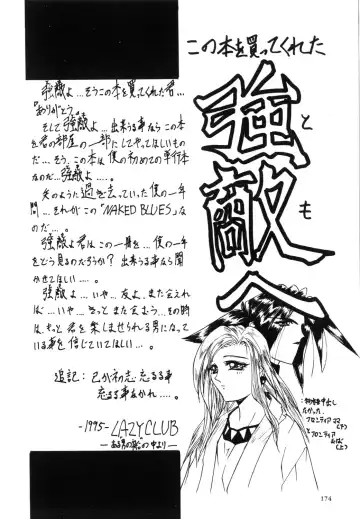 この本を買ってくれた
強敵へ
とも
強敵よ…そうこの本を買てくれた君…
『ありがとう』
そして強敵よ…出来うる事ならこの本
を君の部屋の一部にしてやってほしいもの
だ…そう、この本は僕の初めての単行本
なのだ…強敵よ…。
矢のように過ぎ去っていった僕の一年
間…それがこの「NAKED BLUES」な
のだ…。
強敵よ君はこの一冊を…僕の一年
をどう見るのだろうか?出来うる事なら聞
かせてほしい…。
強敵よ…いや…友よ、また会えれ
ば…いや…きっとまた会おう…その時
は、もっと君を楽しませられる男になって
いる事を信じていてほしい…。
追記:己が初志、忘るる事
忘るる事なかれ…。
-1995- LAZY CLUB
―ある男の船の中より―
フロンティア
174